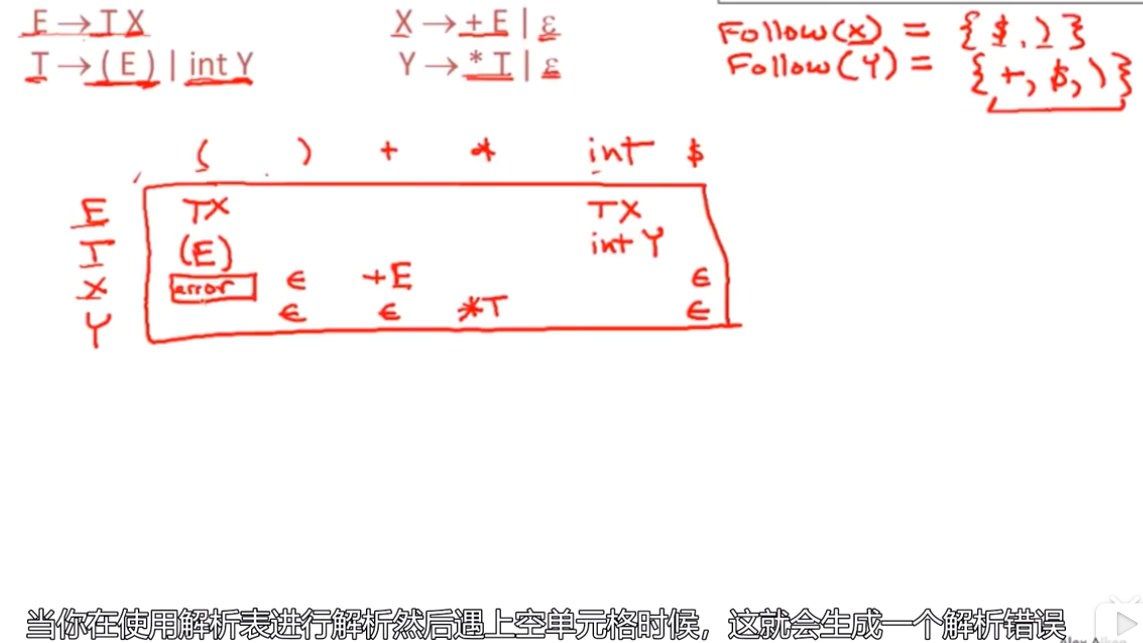 E → T X    X → + E | ε    Follow(X) = { $, ) }
T → ( E ) | int Y    Y → * T | ε    Follow(Y) = { +, $, ) }
( ) + * int $
E TX TX
T (E) int Y
X error ε +E ε
Y ε ε *T ε
当你在使用解析表进行解析然后遇上空单元格时候，这就会生成一个解析错误